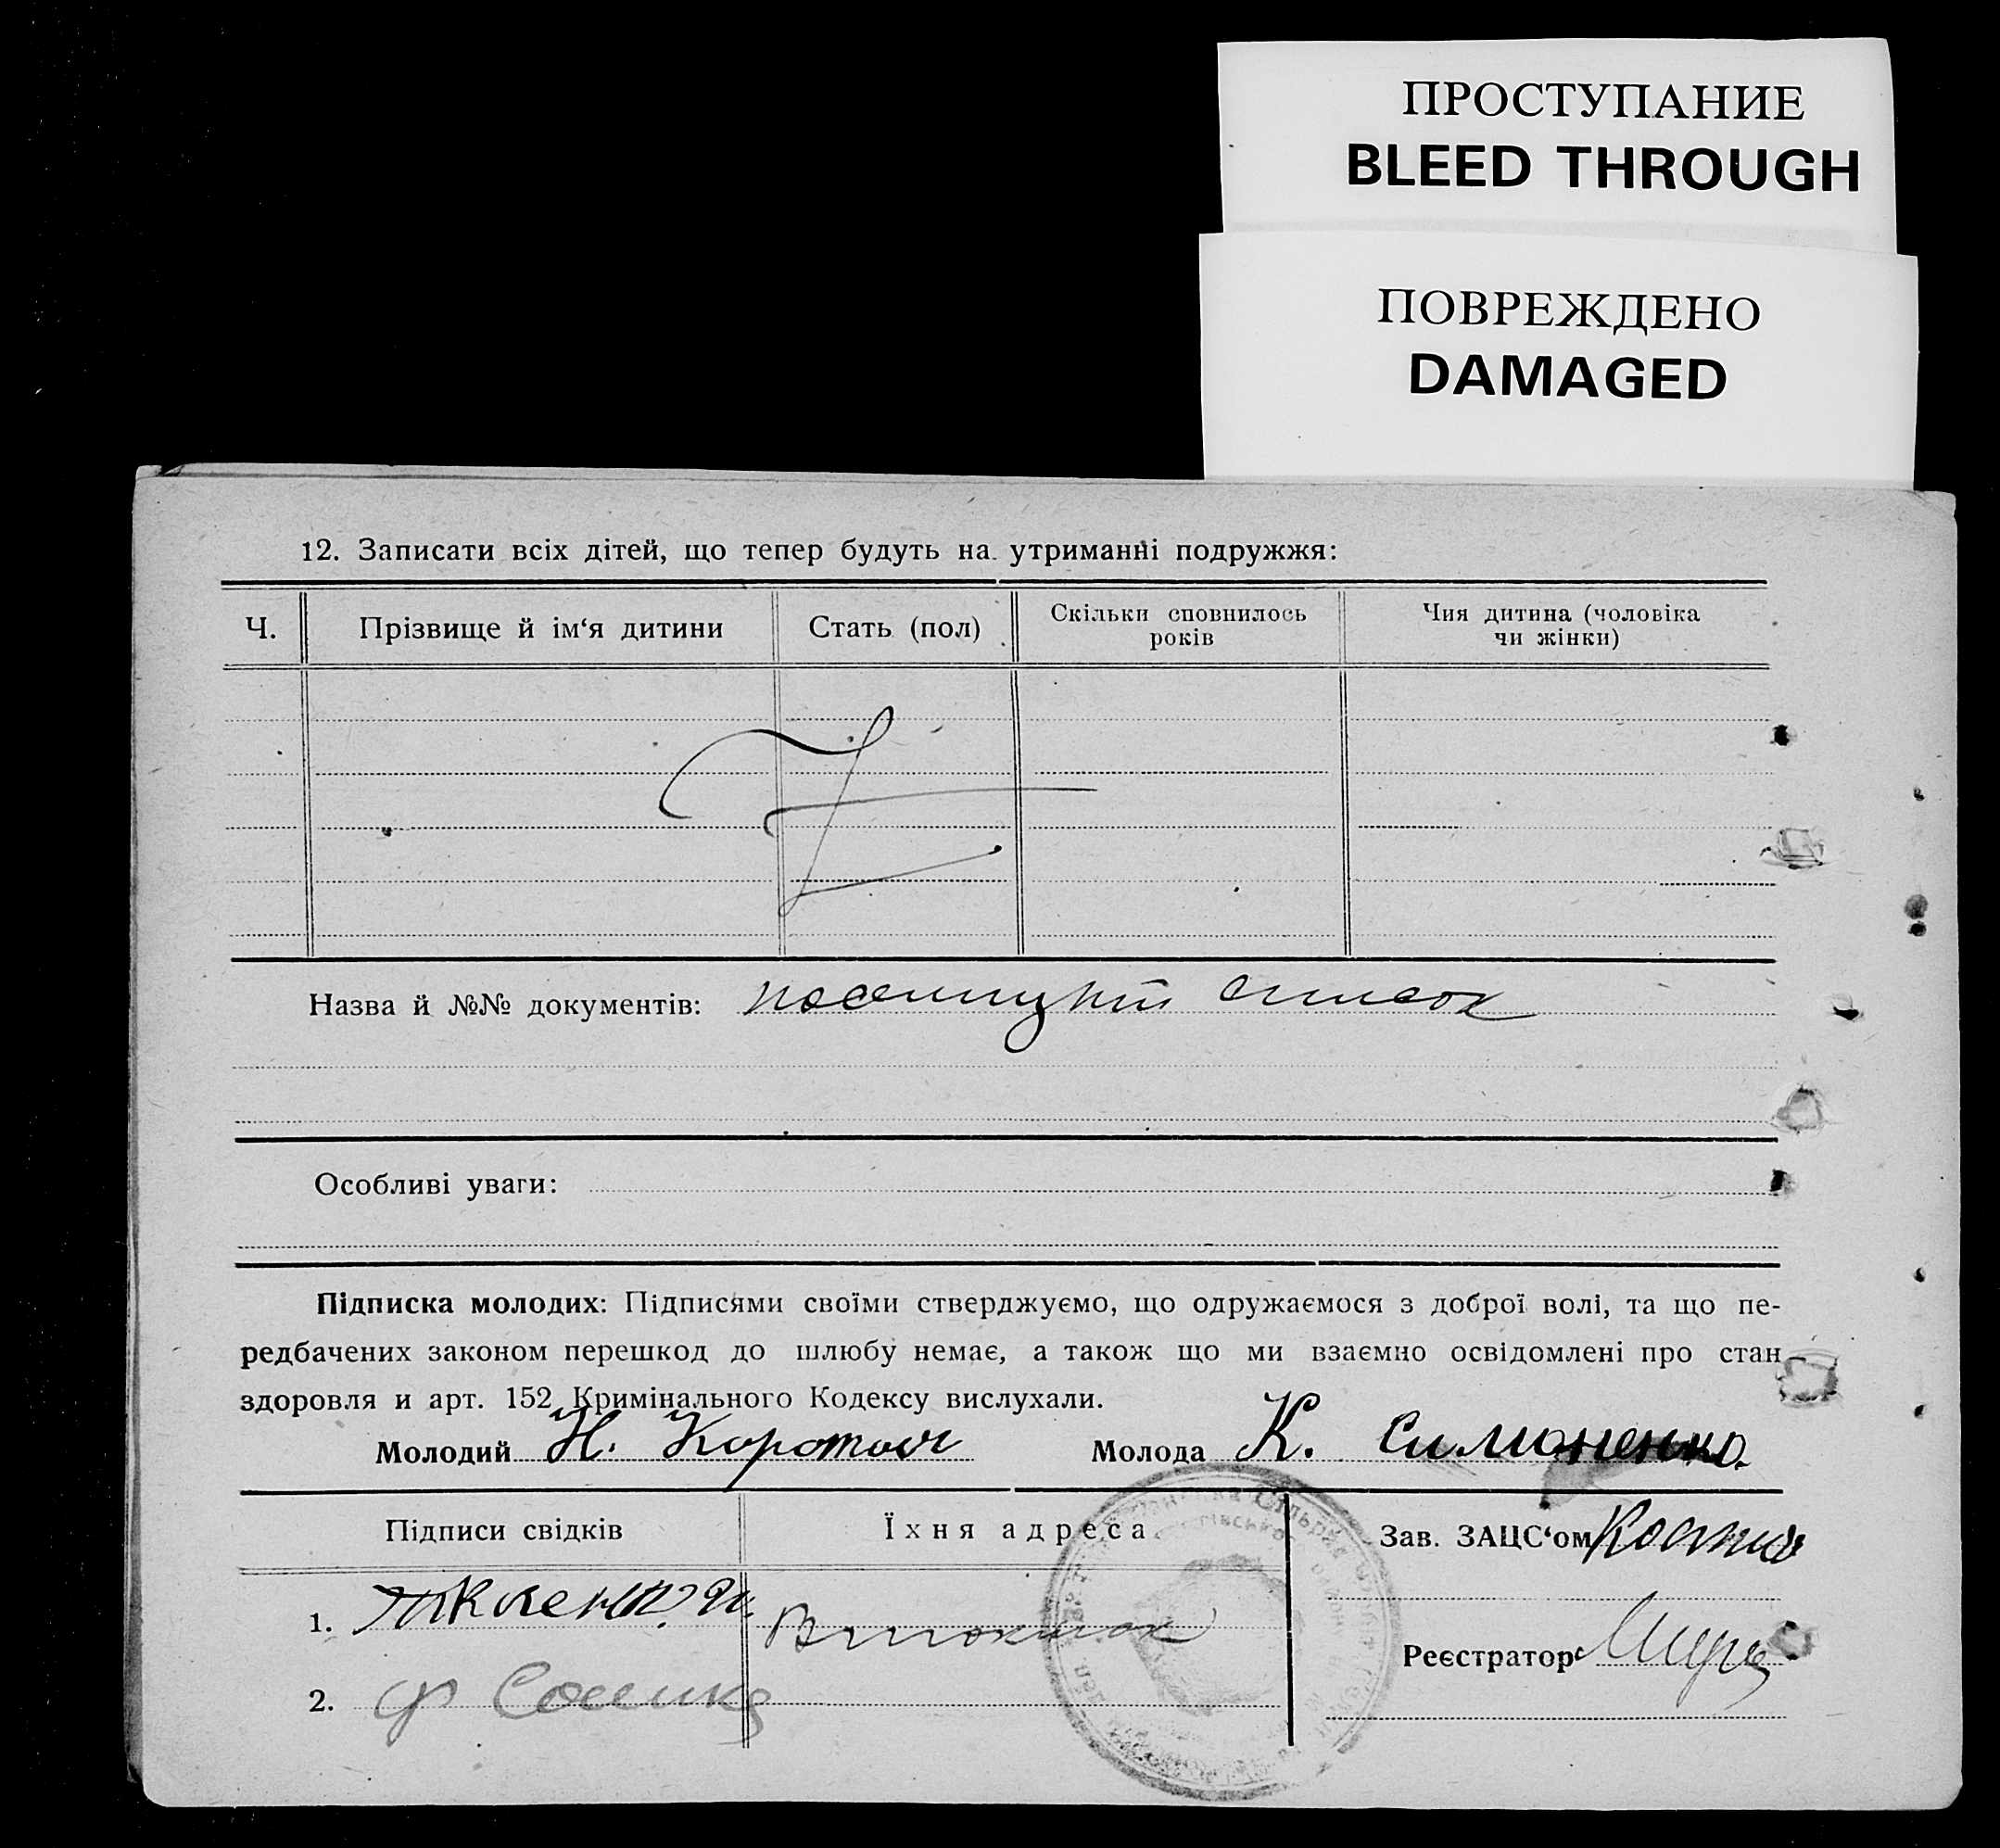 ПРОСТУПАНИЕ
BLEED THROUGH
ПОВРЕЖДЕНО
DAMAGED
12. Записати всіх дітей, що тепер будуть на утриманні подружжя:
Ч.
Прізвище й ім‘я дитини
Стать (пол)
Скільки сповнилось
років
Чия дитина (чоловіка
чи жінки)
Назва й №№ документів: список
Особливі уваги:
Підписка молодих: Підписями своїми стверджуємо, що одружаємося з доброї волі, та що пе-
редбачених законом перешкод до шлюбу немає, а також що ми взаємно освідомлені про стан
здоровля и арт. 152 Кримінального Кодексу вислухали.
Молодий Н. Молода К. Симоненко.
Підписи свідків
Їхня адреса
Зав. ЗАЦС‘ом
1.
Реєстратор
2.